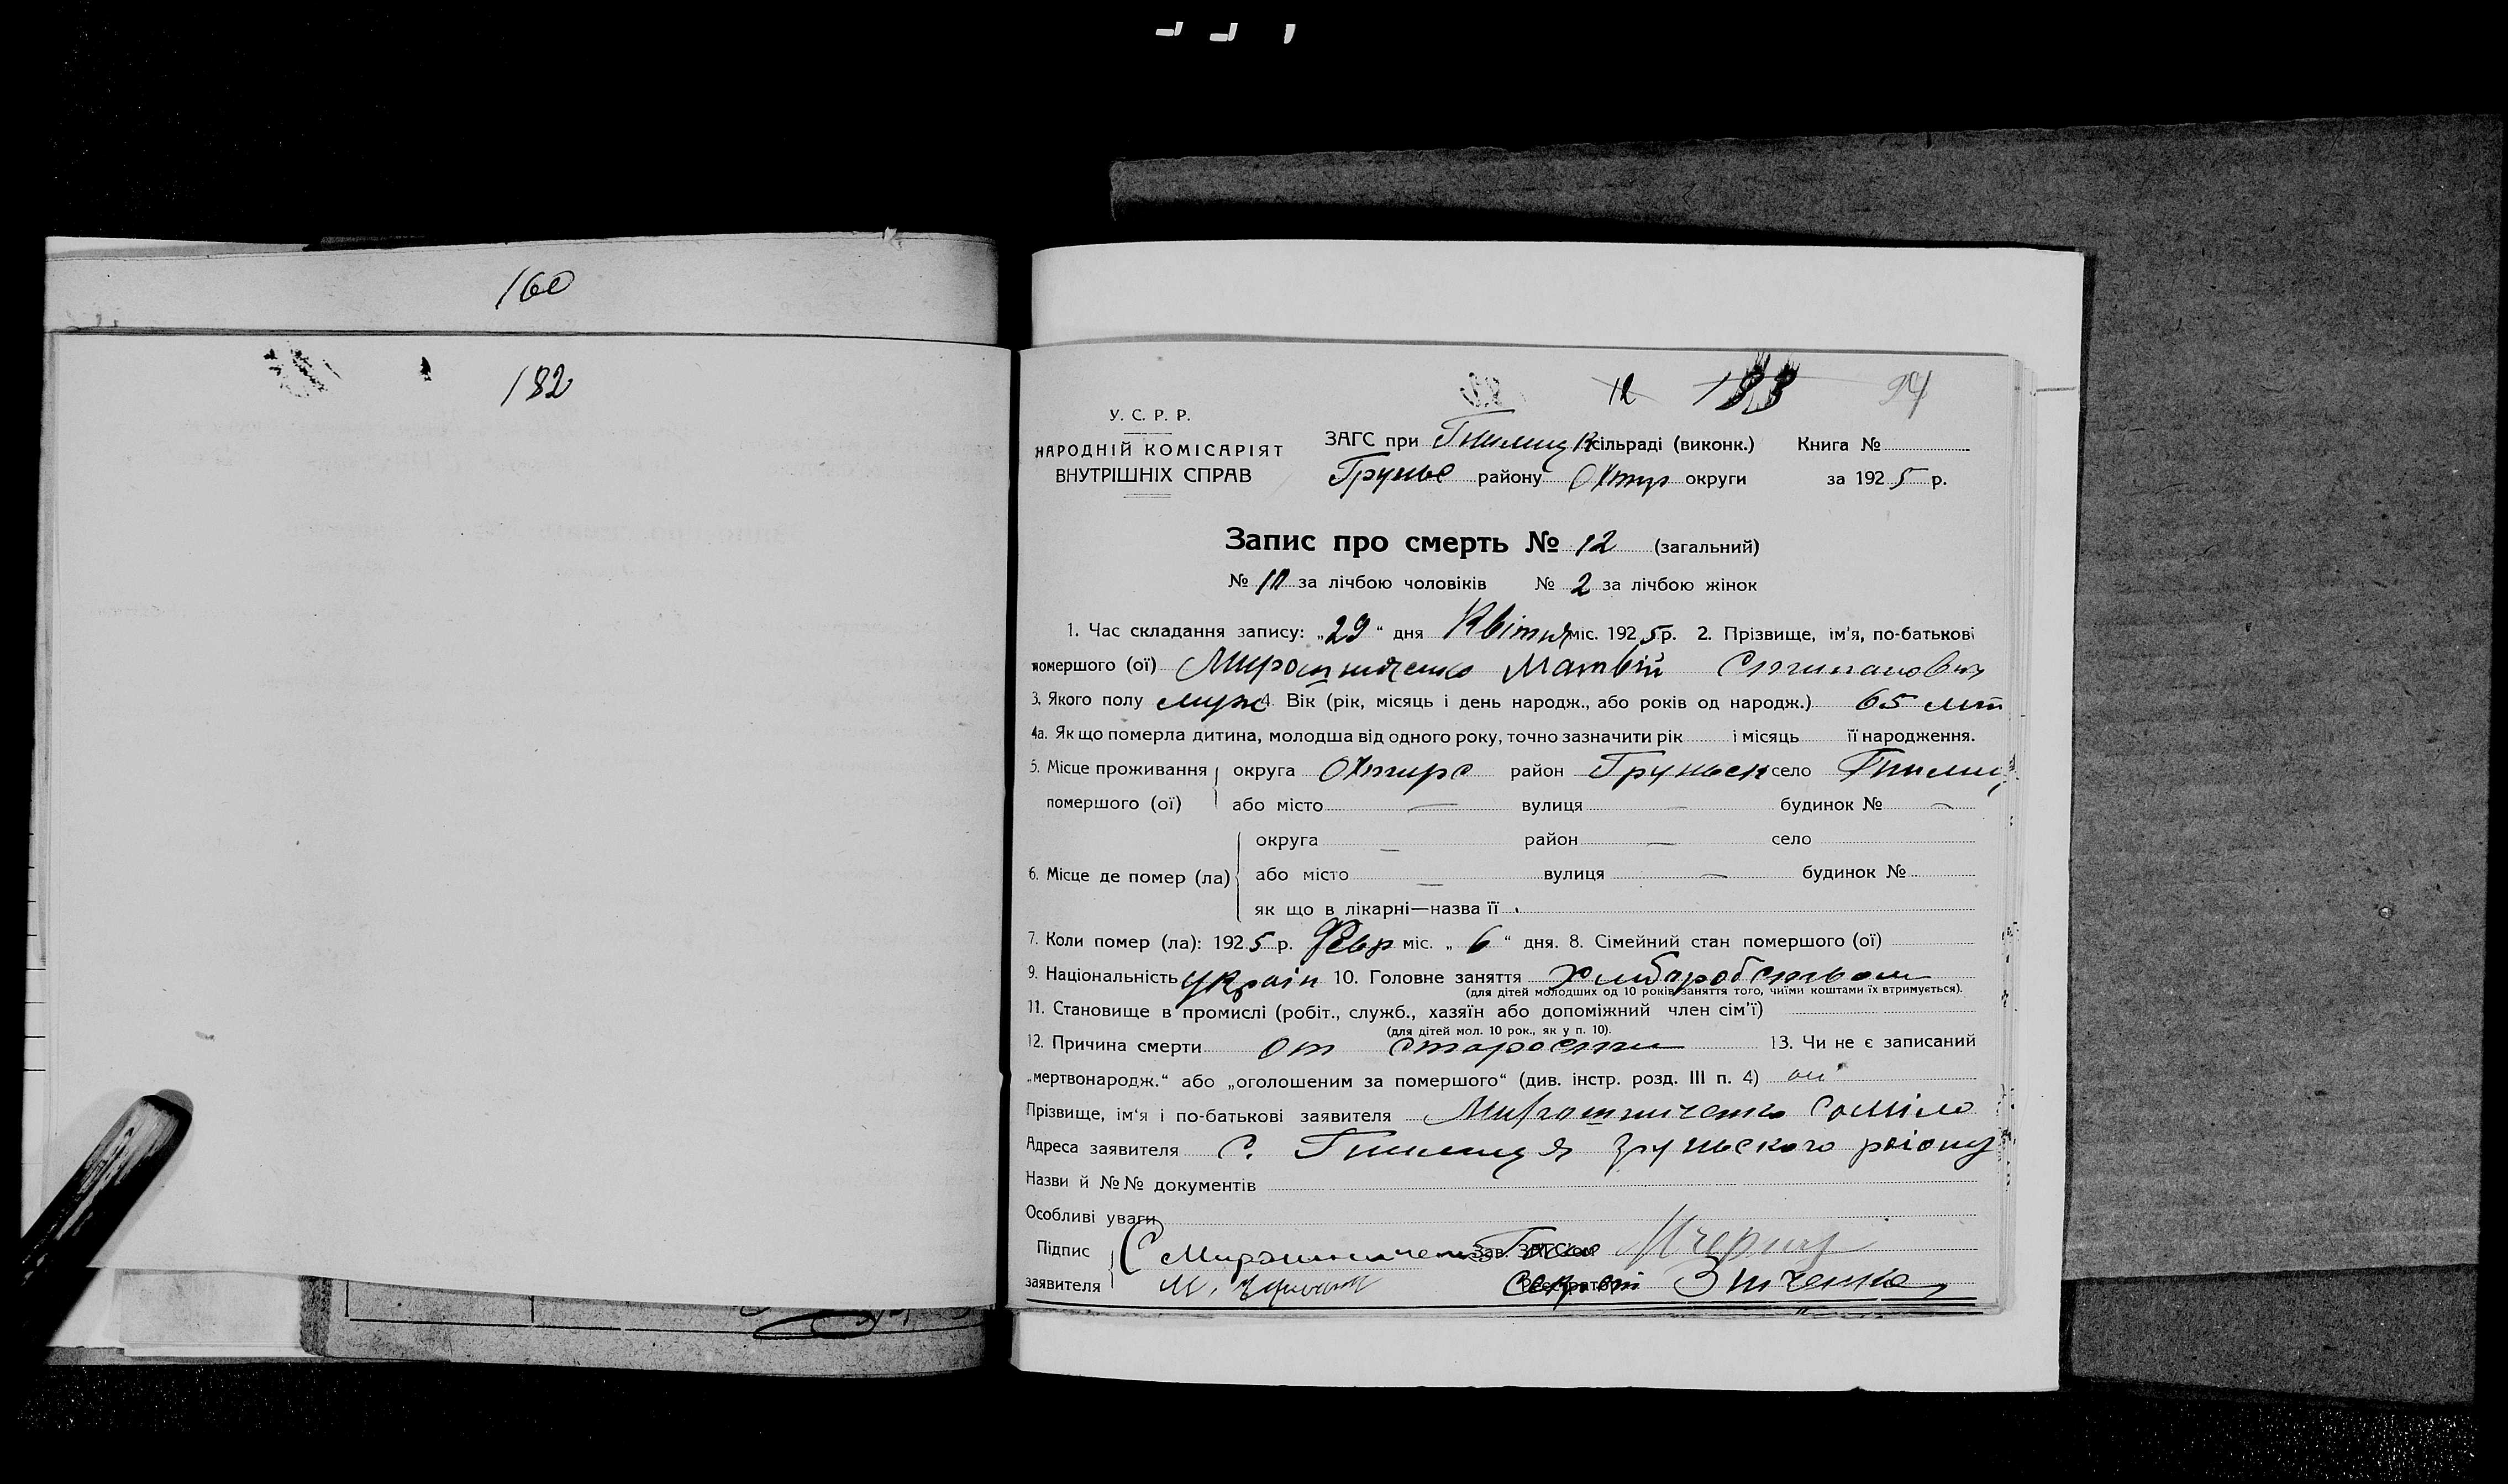 160
182
12 183 94
У. С. Р. Р.
НАРОДНІЙ КОМІСАРІЯТ
ВНУТРІШНІХ СПРАВ
ЗАГС при Гнилицк сільраді (виконк.) Книга №
Грунье району Охтир округи за 1925 р.
Запис про смерть № 12 (загальний)
№ 10 за лічбою чоловіків № 2 за лічбою жінок
1. Час складання запису: „29“ дня Квітня міс. 1925 р. 2. Прізвище, ім'я, по-батькові
помершого (ої) Мирошниченко Матвій Степанович
3. Якого полу муж 4. Вік (рік, місяць і день народж., або років од народж.) 65 лет
4а. Як що померла дитина, молодша від одного року, точно зазначити рік і місяць її народження.
5. Місце проживання округа Охтирс район Груньск село Гнилиц
помершого (ої) або місто — вулиця — будинок № —
округа — район — село
6. Місце де помер (ла) або місто — вулиця — будинок №
як що в лікарні—назва її
7. Коли помер (ла): 1925 р. Февр міс. „6“ дня. 8. Сімейний стан помершого (ої)
9. Національність Україн 10. Головне заняття Хлиборобством
(для дітей молодших од 10 років заняття того, чиїми коштами їх втримується).
11. Становище в промислі (робіт., служб., хазяїн або допоміжний член сім'ї)
(для дітей мол. 10 рок., як у п. 10).
12. Причина смерти от старости 13. Чи не є записаний
„мертвонародж.“ або „оголошеним за помершого“ (див. інстр. розд. III п. 4)
Прізвище, ім'я і по-батькові заявителя Мирошниченко Соміло
Адреса заявителя С. Гнилиця Груньского району
Назви й №№ документів
Особливі уваги
Підпис Мирошниченко Зав. ЗАГС'ом Голов
заявителя М. Реєстратор Секрет Зінченко